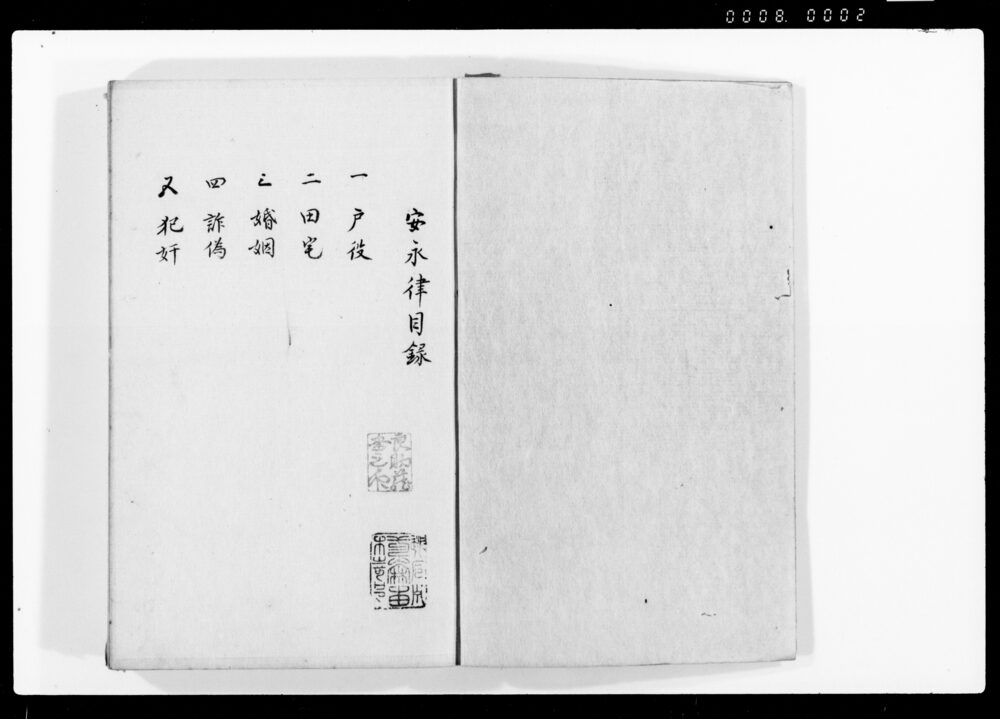 0008. 0002
安永律目録
一 戸役
二 田宅
三 婚姻
四 詐偽
五 犯奸